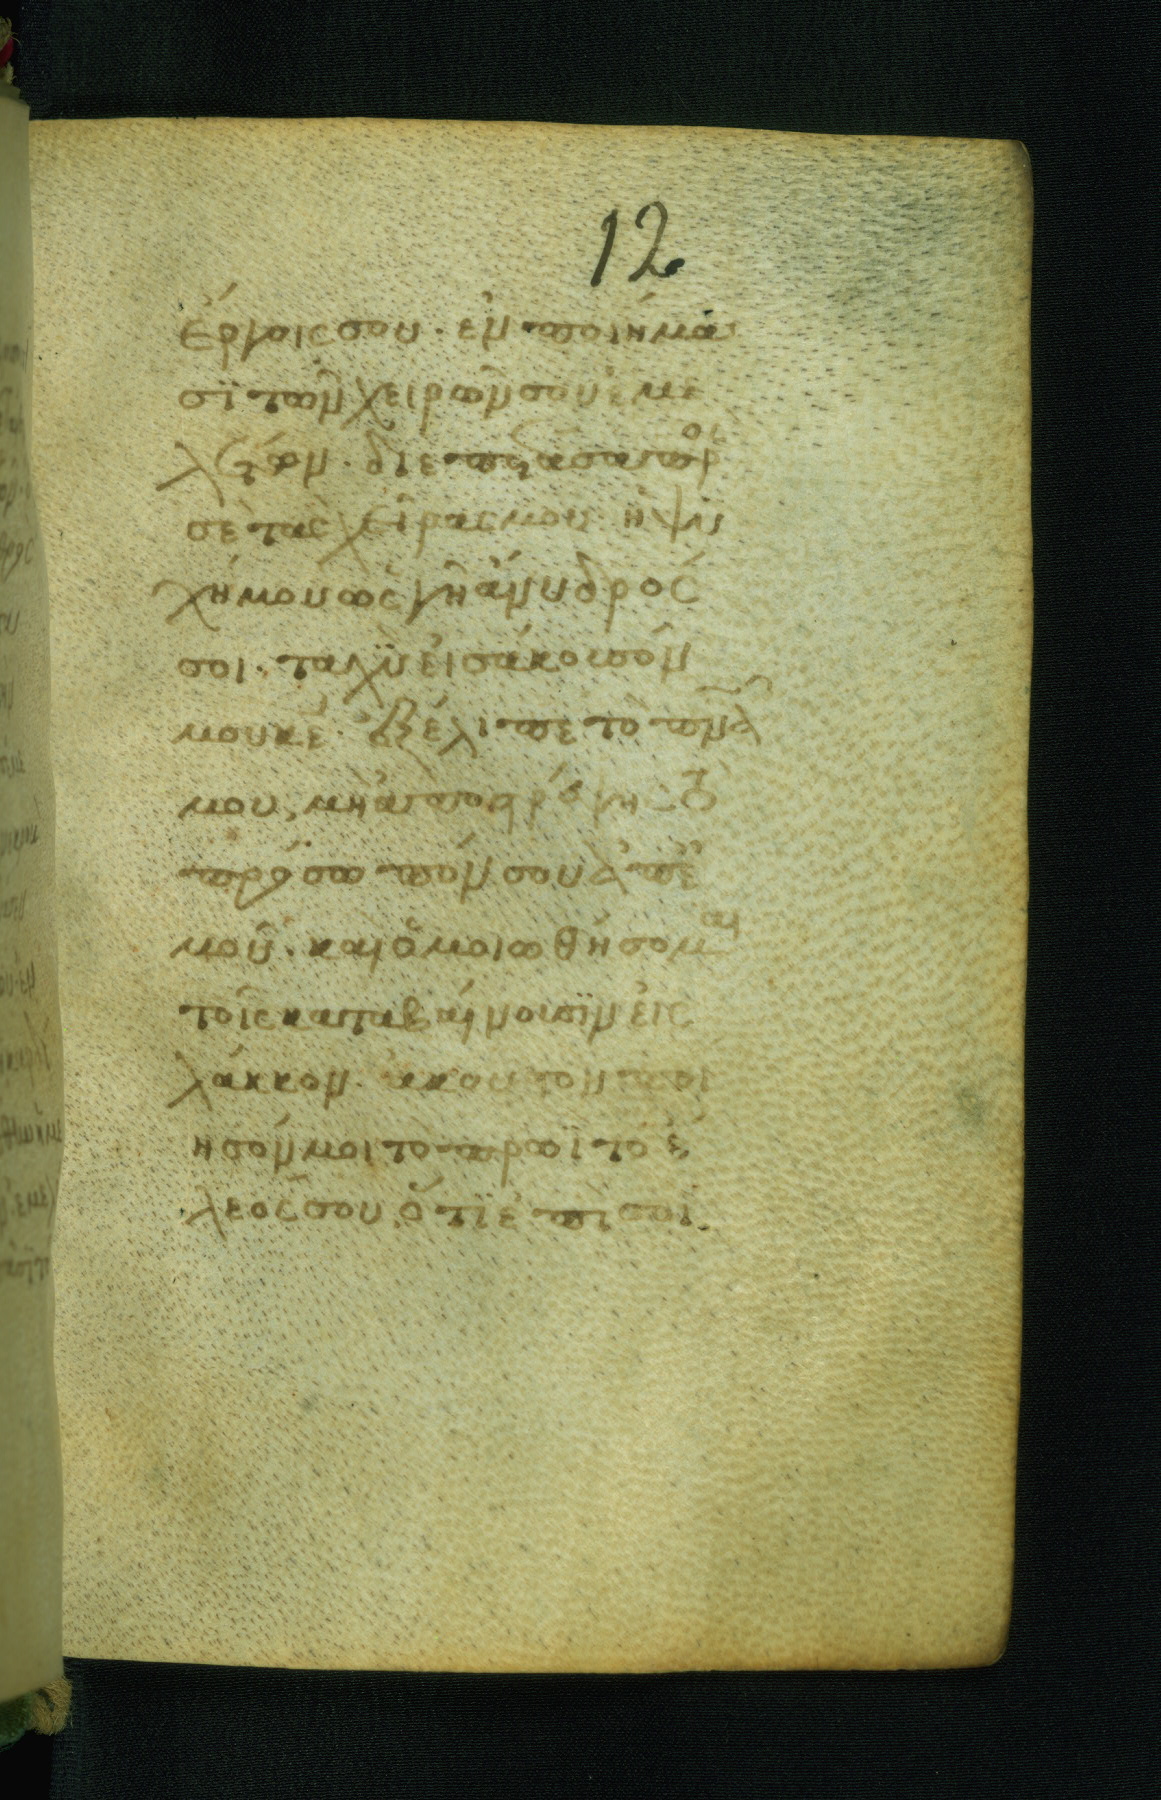 12
ἔργοις σου· ἐν ποιήμα
σϊ τῶν χειρῶν σου ἐμε
λέτων· διεπέτασα πρός
σὲ τὰς χεῖρας μου· ἡ ψυ
χή μου ὡς γῆ ἄνυδρός
σοι· ταχὺ εἰσάκουσόν
μου κε· ἐξέλιπε τὸ πνα
μου, μὴ ἀποστρέψης τὸ
πρόσωπόν σου ἀπ ἐ
μοῦ· καὶ ὁμοιωθήσομαι
τοῖς καταβαίνουσϊν εἰς
λάκκον· ἀκουστὸν ποι
ησόν μοι τὸ πρωῒ τὸ ἔ
λεος σου, ὅτι ἐπὶ σοι